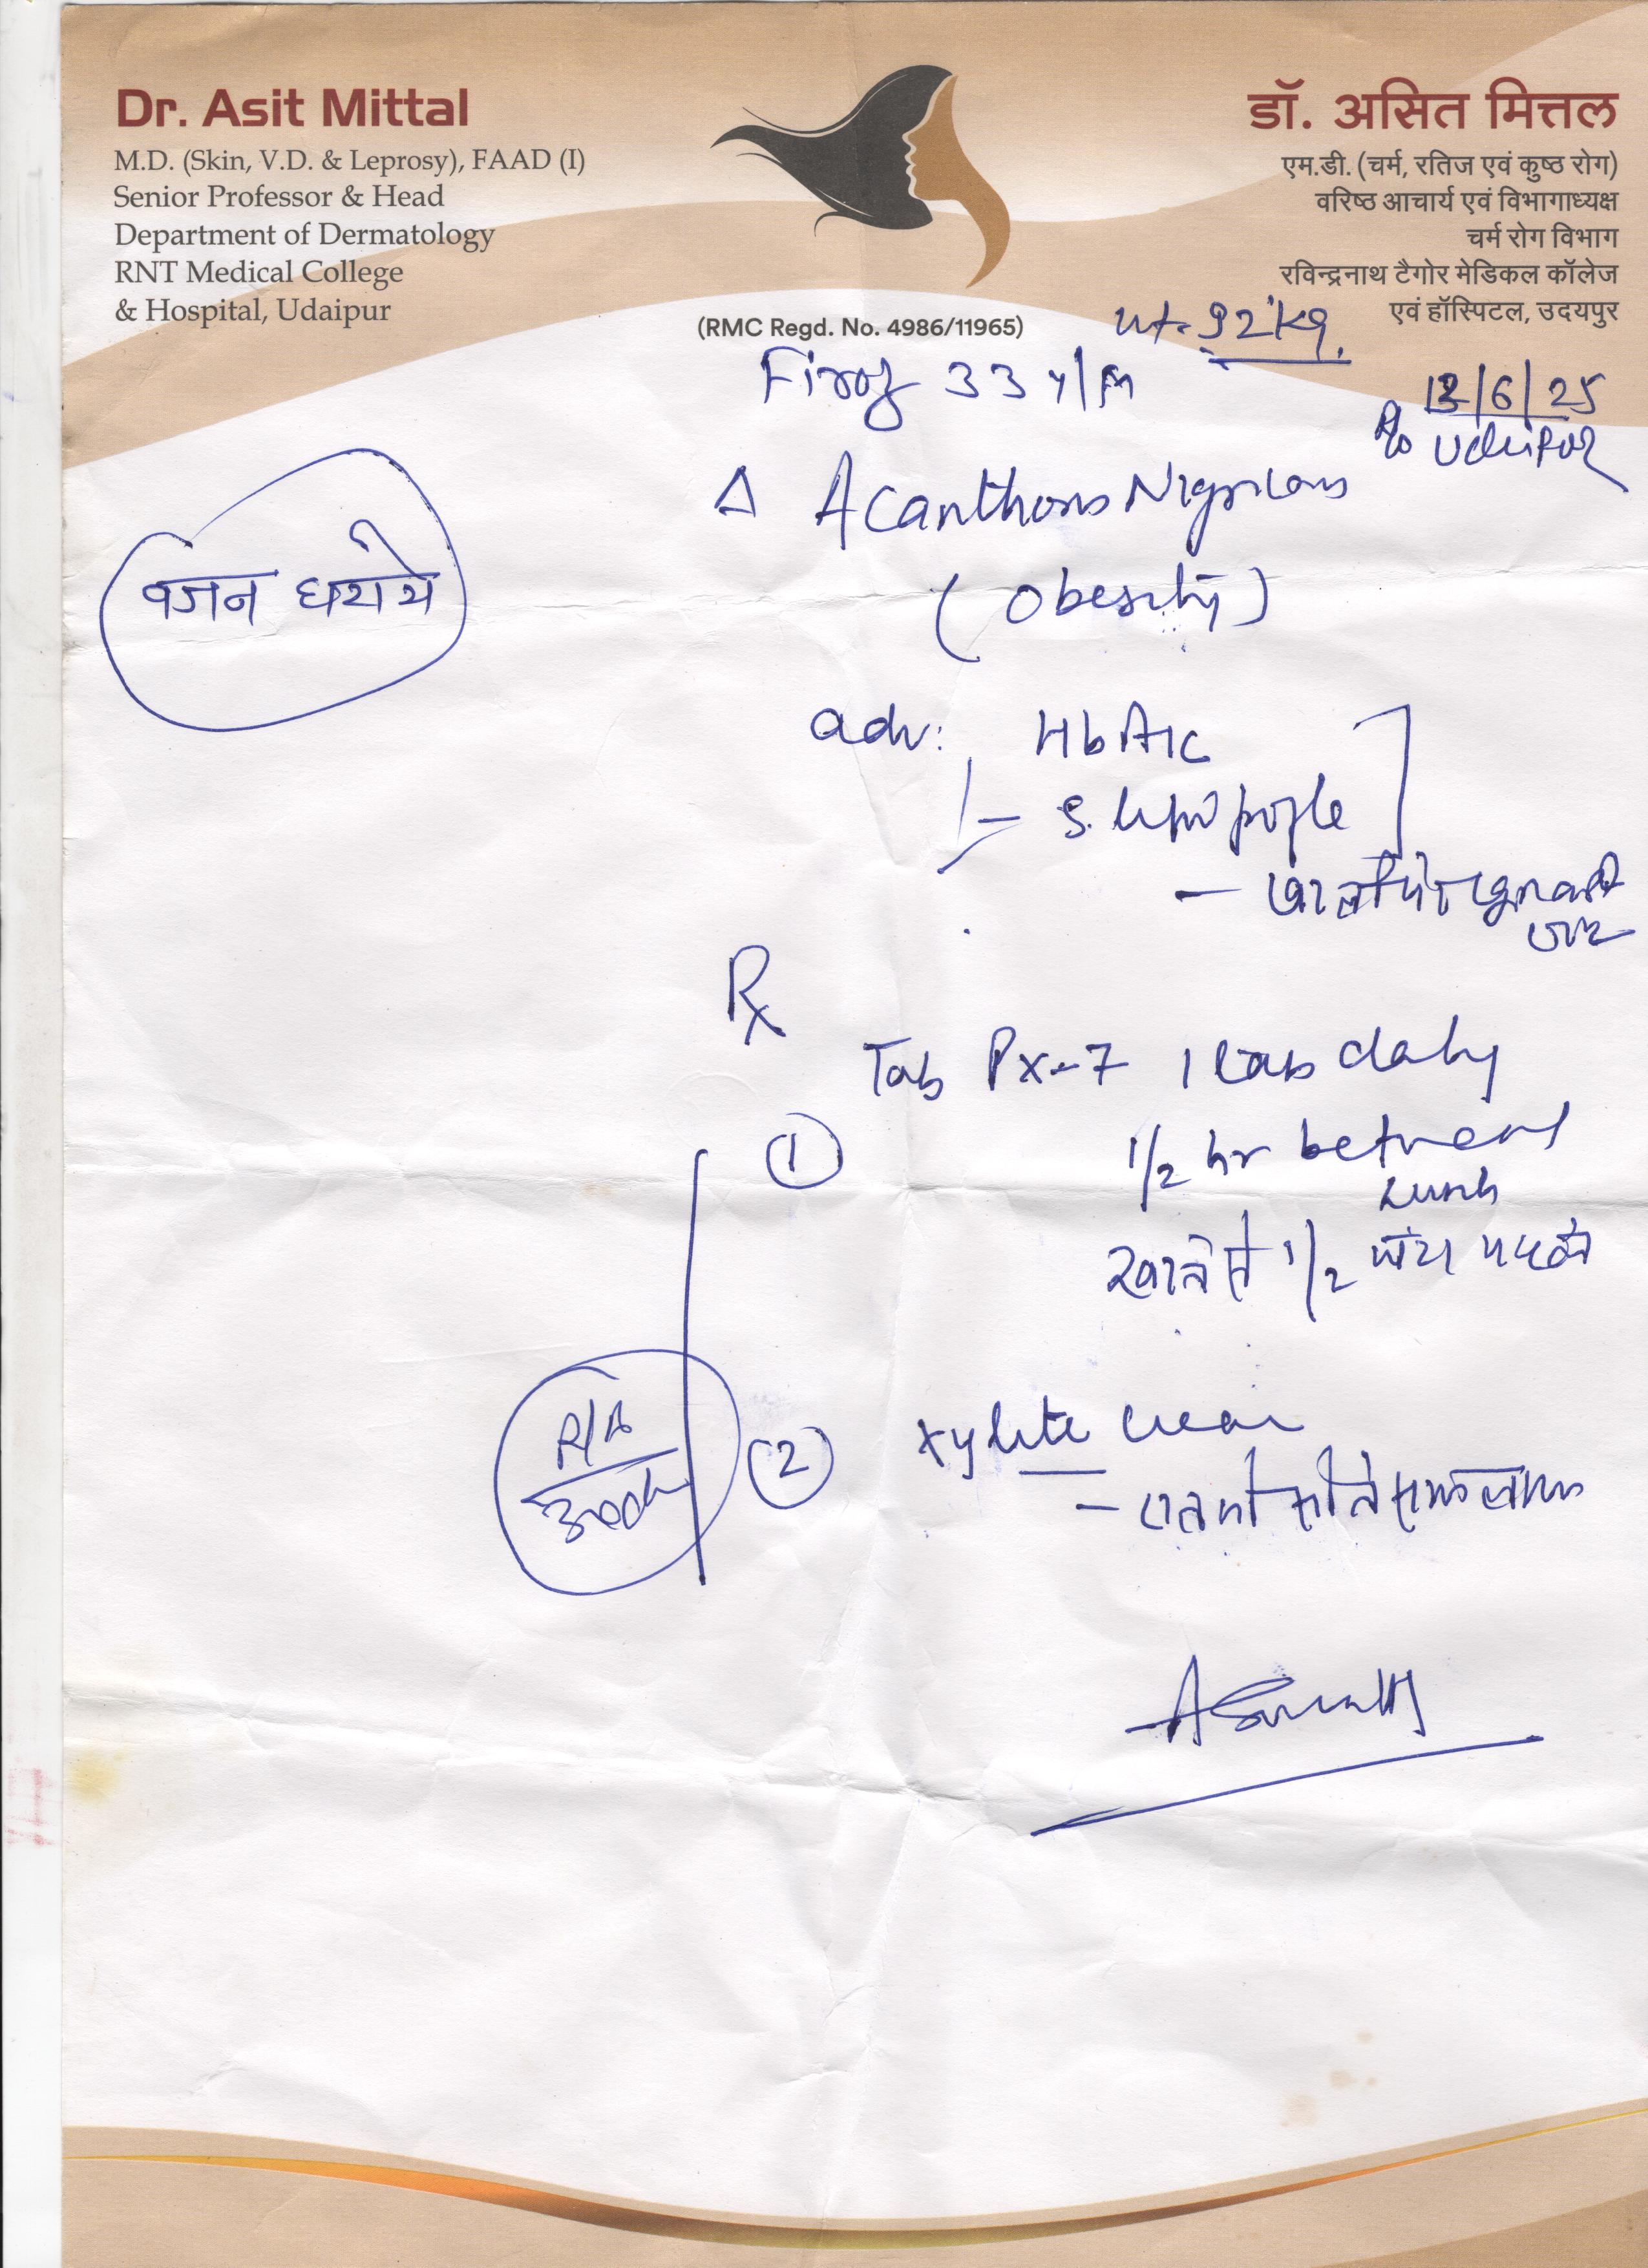 Dr. Asit Mittal
M.D. (Skin, V.D. & Leprosy), FAAD (I)
Senior Professor & Head
Department of Dermatology
RNT Medical College
& Hospital, Udaipur
डॉ. असित मित्तल
एम.डी. (चर्म, रतिज एवं कुष्ठ रोग)
वरिष्ठ आचार्य एवं विभागाध्यक्ष
चर्म रोग विभाग
रविन्द्रनाथ टैगोर मेडिकल कॉलेज
एवं हॉस्पिटल, उदयपुर
(RMC Regd. No. 4986/11965)
wt. 92 kg.
Firoz 33 y/M
/6/25
R/o Udaipur
Δ Acanthosis Nigricans
वजन घटाये
(Obesity)
adv: HbA1c
- S. lipid profile
Rx
Tab Px-7 1 tab daily
①
1/2 hr
Lunch
खाने से 1/2 घंटा पहले
② Xylite cream